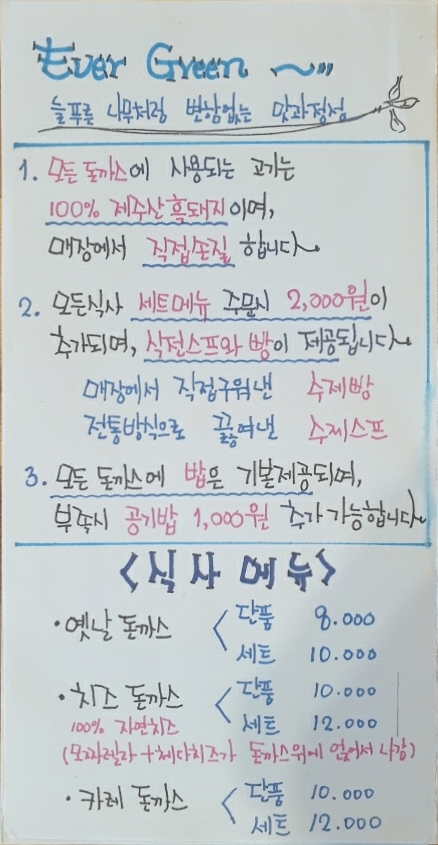 Ever Green ~
늘푸른 나무처럼 변함없는 맛과정성
1. 모든 돈까스에 사용되는 고기는
100% 제주산흑돼지이며,
매장에서 직접손질 합니다.
2. 모든식사 세트메뉴 주문시 2,000원이
추가되며, 식전스프와 빵이 제공됩니다.
매장에서 직접구워낸 수제빵
전통방식으로 끓여낸 수제스프
3. 모든 돈까스에 밥은 기본제공되며,
부족시 공기밥 1,000원 추가 가능합니다.
<식사 메뉴>
· 옛날 돈까스 < 단품 8.000
세트 10.000
· 치즈 돈까스 < 단품 10.000
100% 자연치즈 세트 12.000
(모짜렐라 + 체다치즈가 돈까스위에 얹어서 나감)
· 카레 돈까스 < 단품 10.000
세트 12.000